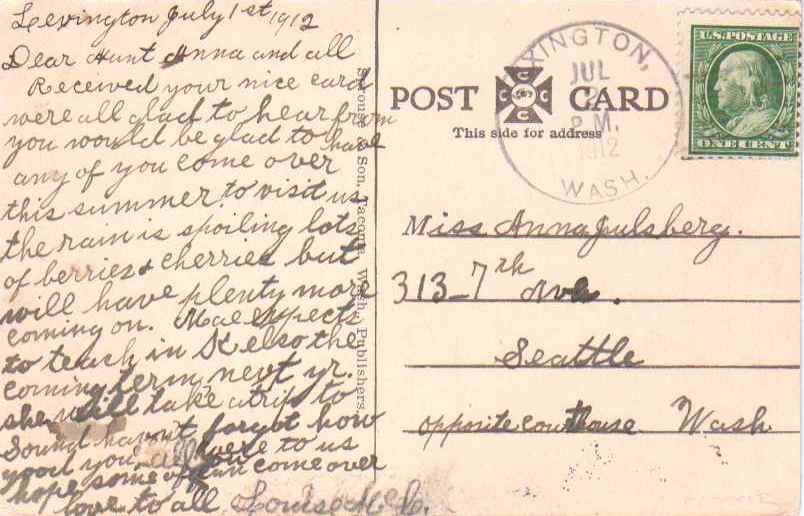 Lexington July 1st 1912
Dear Aunt Anna and all
Received your nice card
were all glad to hear from
you would be glad to have
any of you come over
this summer to visit us
the rain is spoiling lots
of berries & cherries but
will have plenty more
coming on. Mae expects
to teach in Kelso the
coming term next yr.
she will take a trip to
Sound havn't forgot how
good you all were to us
hope some of you can come over
love to all Louise Mc C.
Strouse & Son, Tacoma, Wash., Publishers.
POST CARD
This side for address
XINGTON,
JUL
2
P.M.
1912
WASH.
U.S. POSTAGE
ONE CENT
Miss Anna Julsberg.
313-7th Ave.
Seattle
opposite courthouse Wash